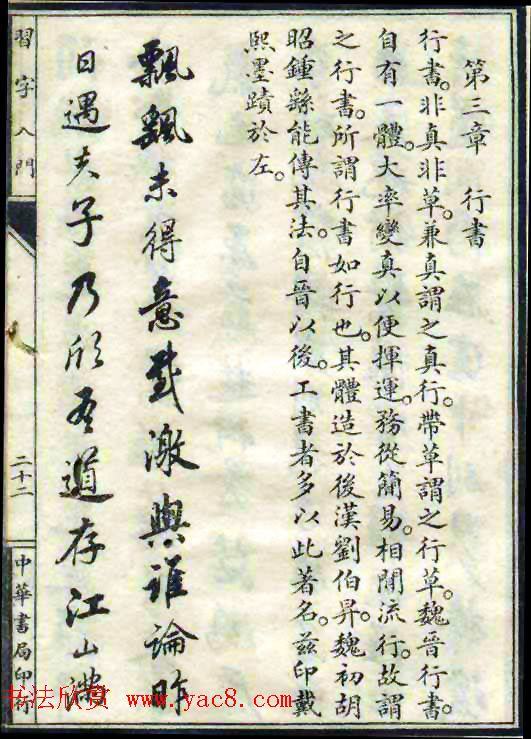 第三章 行書
行書。非真非草。兼真謂之真行。帶草謂之行草。魏晉行書。
自有一體。大率變真以便揮運。務從簡易。相閒流行。故謂
之行書。所謂行書如行也。其體造於後漢劉伯昇。魏初胡
昭鍾繇能傳其法。自晉以後。工書者多以此著名。茲印戴
熙墨蹟於左。
飄飄未得意感激與誰論昨
日遇夫子乃欣吾道存江山滿
習字入門
二十二
中華書局印行
书法欣赏 www.yac8.com